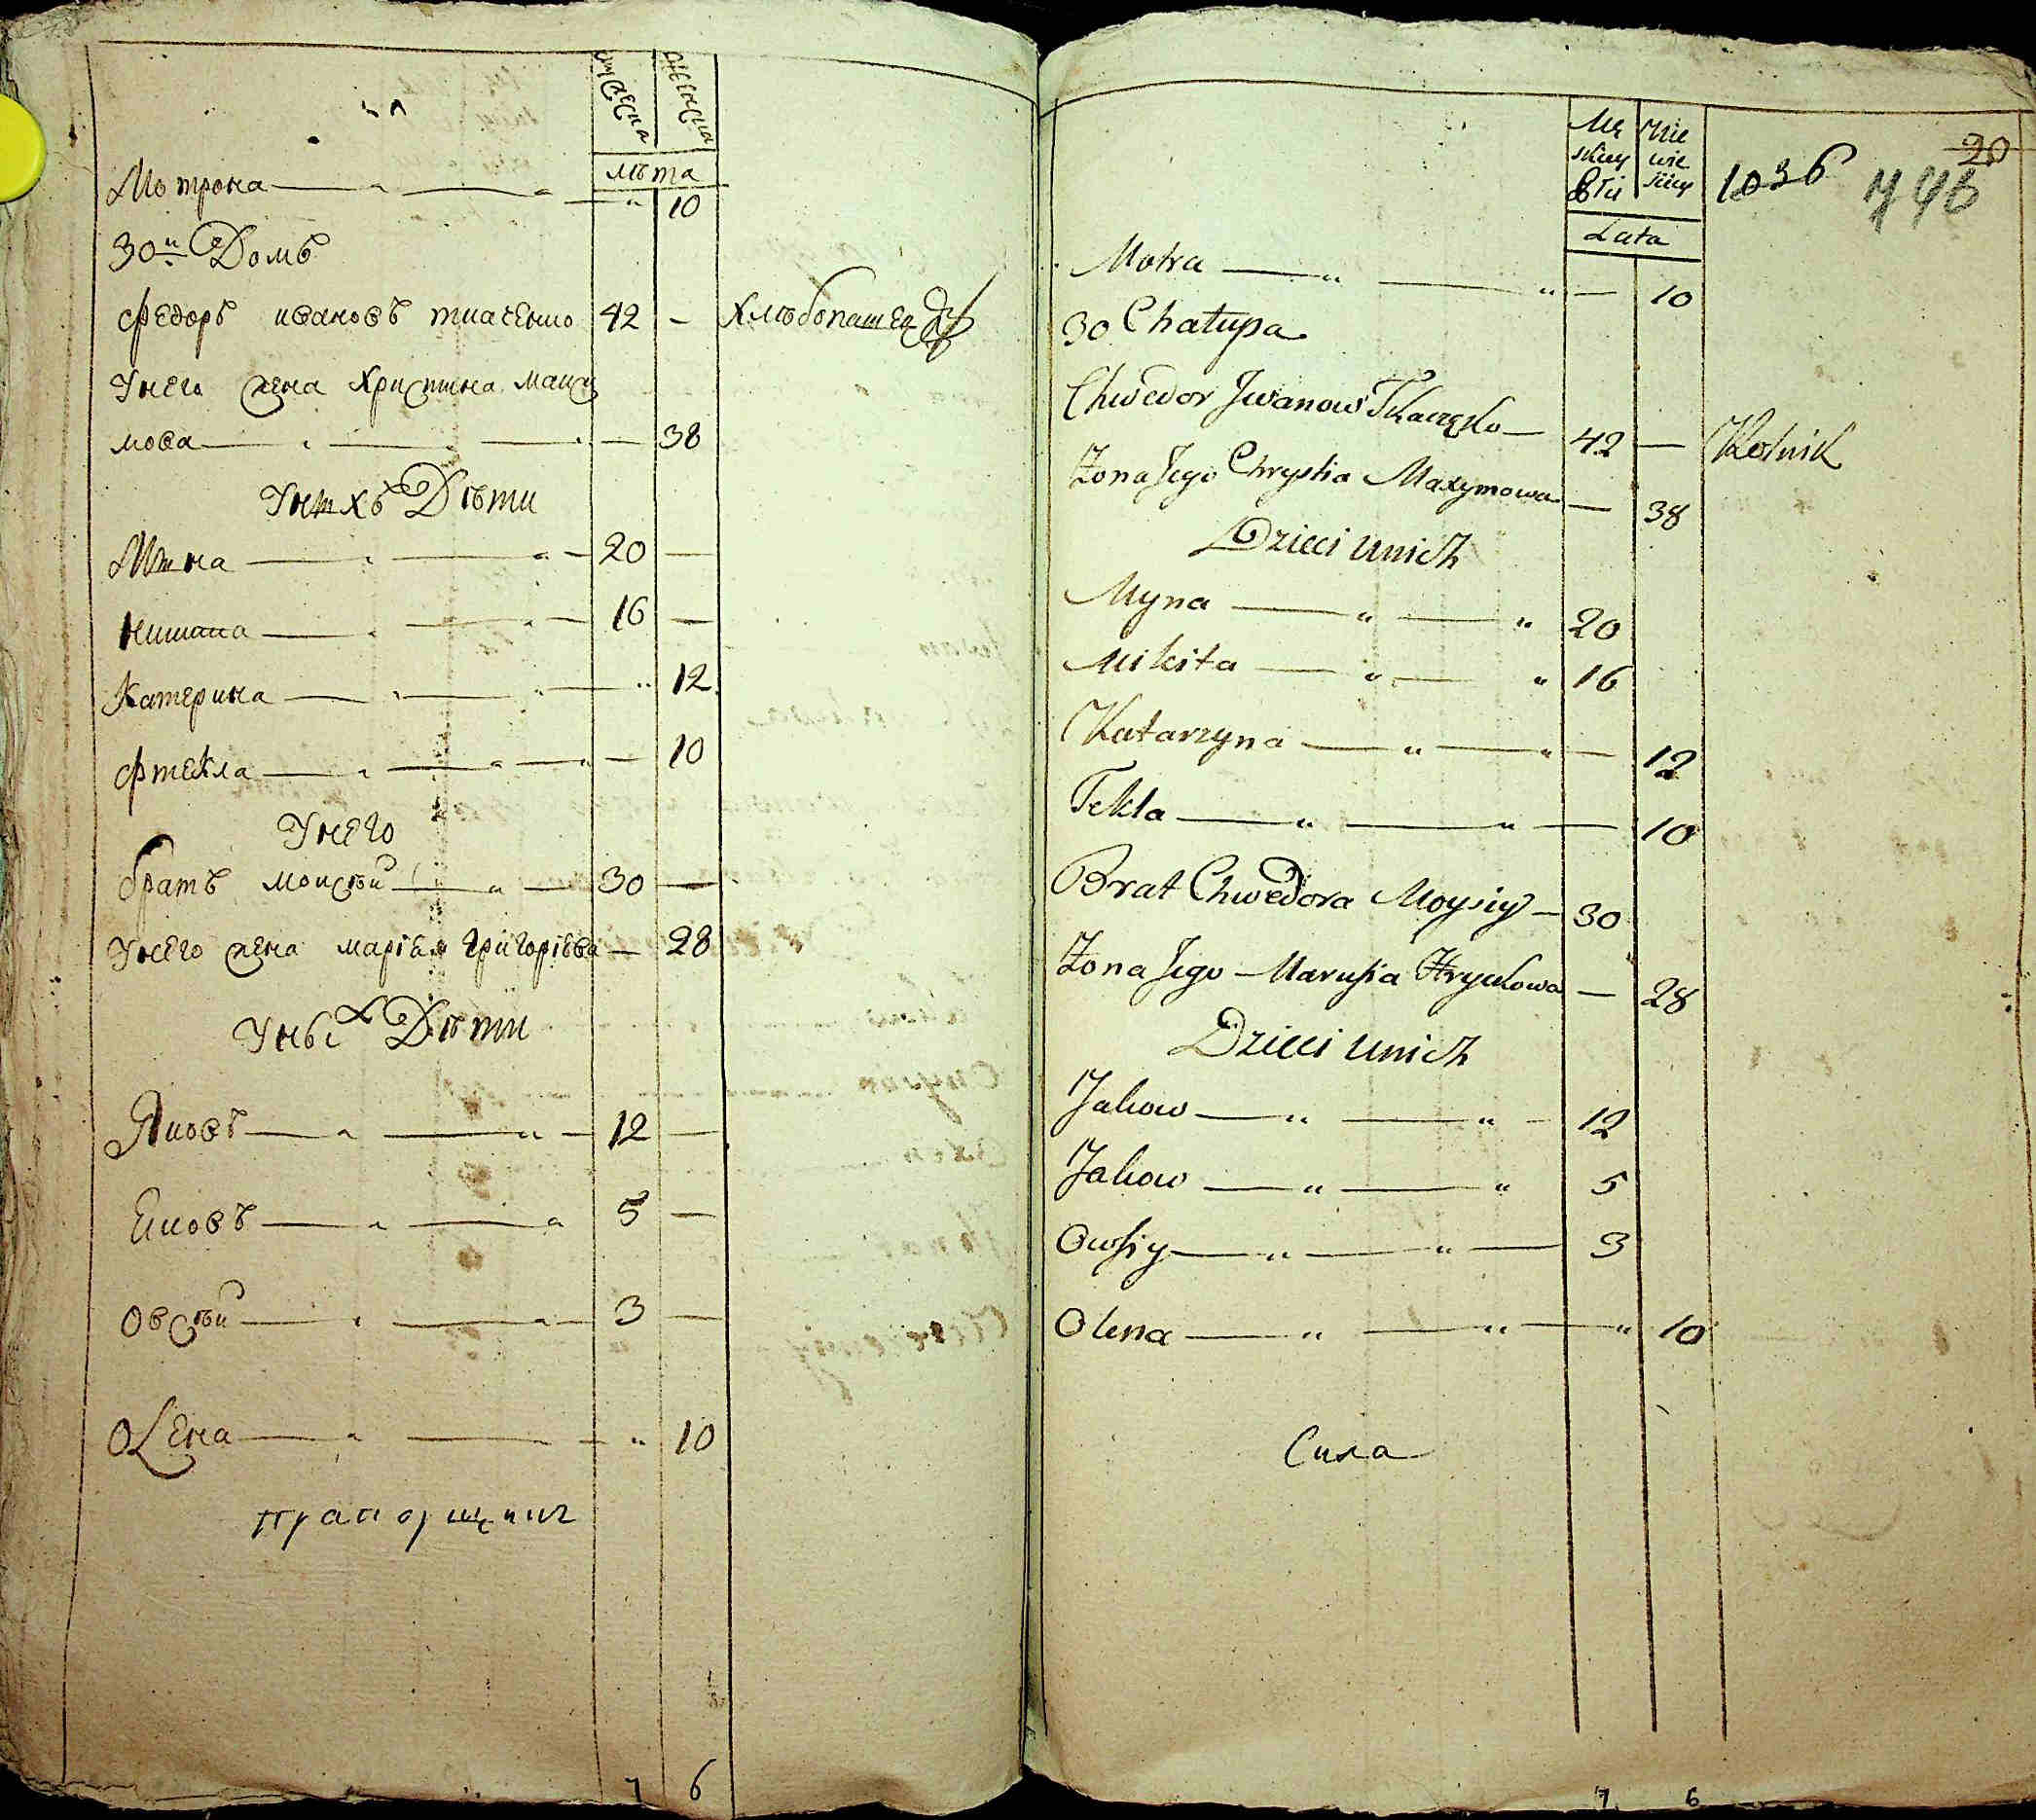 мужеска
женска
лѣта
Мотрона — " — " — " 10
30й Домъ
Федоръ ивановъ ткаченко 42 — хлѣбопашецъ
Унего жена Христина макси
мова — " — " — 38
Унихъ Дѣти
Мина — " — " — 20 —
никита — " — " — 16 —
Катерина — " — " — " 12
Фтекла — " — " — " — 10
Унего
братъ моисѣй — " — 30 —
Унего жена маріѣя григоріева — 28
Унихъ Дѣти
Яковъ — " — " — 12 —
Яковъ — " — " 5 —
Овсѣй — " — " — 3 —
Олена — " — — " 10
прапорщикъ
7 6
Mę
skiey
Płci
Nie
wie
ściey
Lata
1036
20
746
Motra — " — " — 10
30 Chałupa
Chwedor Jwanow Tkaczęko — 42 — Rolnik
Zona Jego Chrystia Maxymowa — 38
Dzieci unich
Myna — " — " 20
Mikita — " — " 16
Katarzyna — " — " — 12
Tekla — " — " — 10
Brat Chwedora Moysiy — 30
Zona Jego — Marusia HrycKowa — 28
Dzieci unich
Jakow — " — " — 12
Jakow — " — " 5
Owsiy — " — " — 3
Olena — " — " — " 10
Сила
7 6